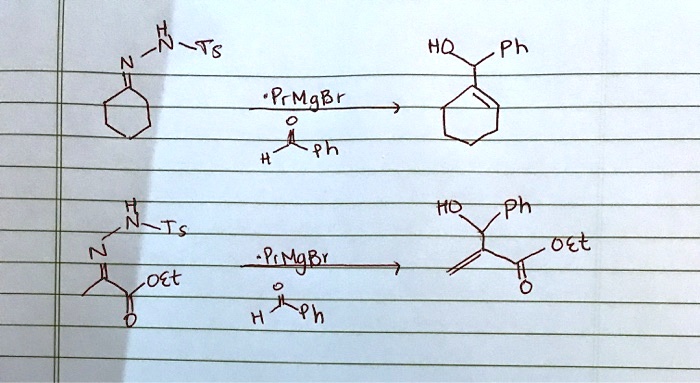 H
N
N-Ts
HO
Ph
•PrMgBr
O
H
Ph
H
N-Ts
N
OEt
O
•PrMgBr
O
H
Ph
HO
Ph
OEt
O